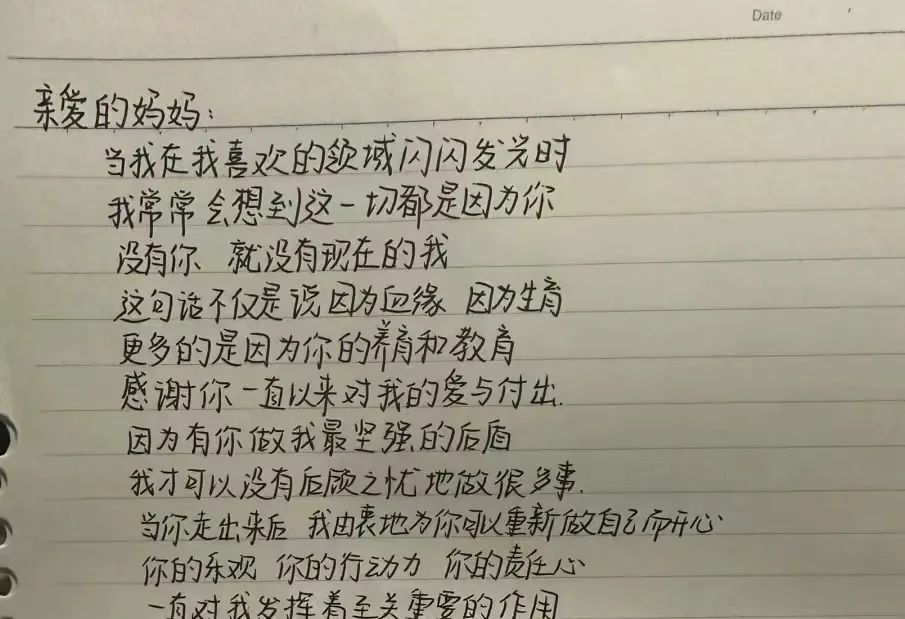 Date
亲爱的妈妈：
当我在我喜欢的领域闪闪发光时
我常常会想到这一切都是因为你
没有你 就没有现在的我
这句话不仅是说因为血缘 因为生育
更多的是因为你的养育和教育
感谢你一直以来对我的爱与付出.
因为有你做我最坚强的后盾
我才可以没有后顾之忧地做很多事.
当你走出来后 我由衷地为你可以重新做自己而开心
你的乐观 你的行动力 你的责任心
一直对我发挥着至关重要的作用